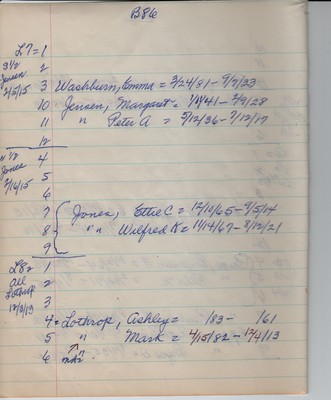 B86
L7 = 1
S 1/2 2
Jensen
2/5/15 3 Washburn, Emma = 2/24/81 - 9/7/33
10 Jensen, Margaret = 1/1/41 - 2/9/28
11 " Peter A = 5/12/36 - 7/12/17
12
N 1/2 4
Jones
7/16/15 5
6
7 { Jones, Ettie C = 12/10/65 - 9/5/14
8 { " " Wilfred K = 11/14/67 - 8/12/21
9
L8 = 1
all 2
Lothrop
12/3/13 3
4 = Lothrop, Ashley = /83 - /61
5 " Mark = 4/15/82 - 12/4/13
6 "